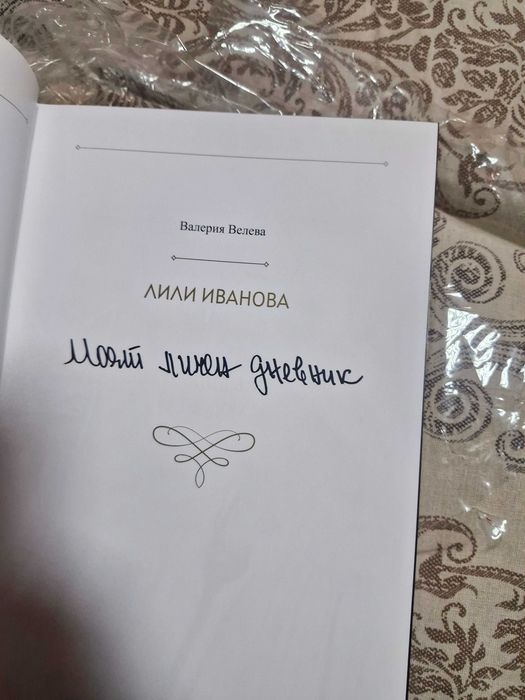 Валерия Велева
ЛИЛИ ИВАНОВА
Моят личен дневник